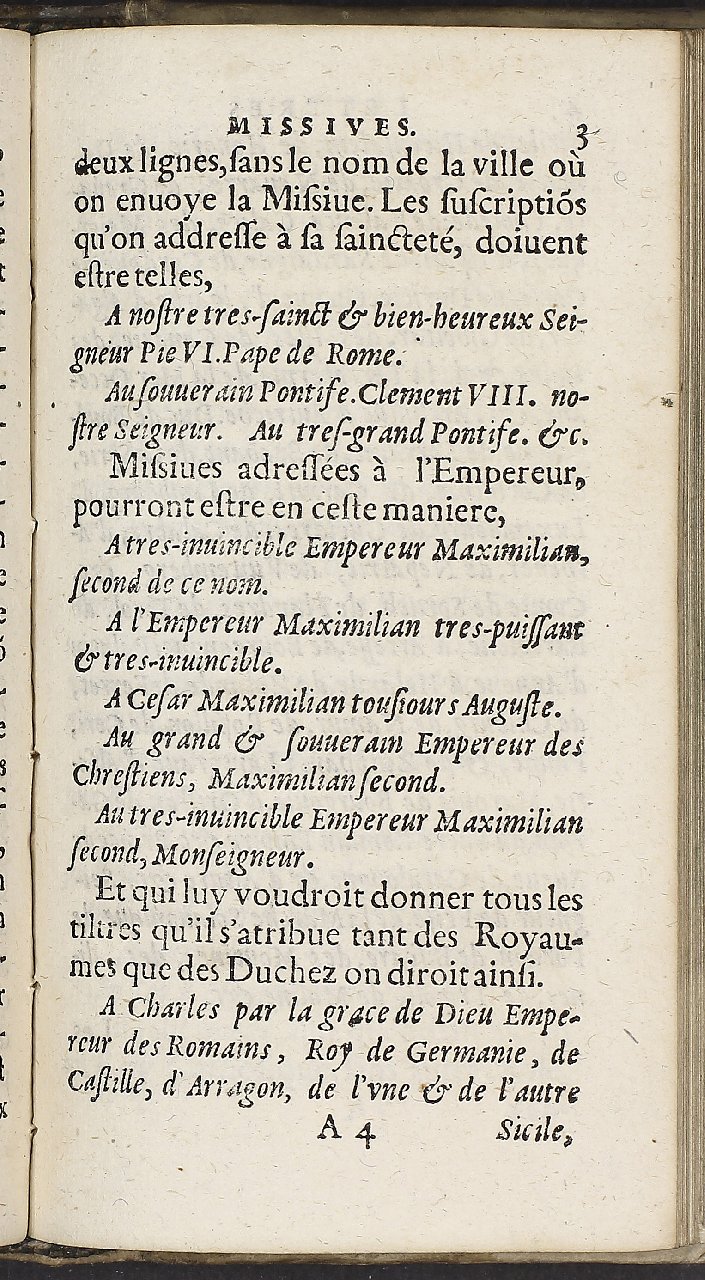 MISSIVES. 3
deux lignes, ſans le nom de la ville où
on enuoye la Miſsiue. Les ſuſcriptiõs
qu'on addreſſe à ſa ſaincteté, doiuent
eſtre telles,
A noſtre tres-ſainct & bien-heureux Sei-
gneur Pie VI. Pape de Rome.
Au ſouuerain Pontife. Clement VIII. no-
ſtre Seigneur. Au treſ-grand Pontife. &c.
Miſsiues adreſſées à l'Empereur,
pourront eſtre en ceſte maniere,
A tres-inuincible Empereur Maximilian,
ſecond de ce nom.
A l'Empereur Maximilian tres-puiſſant
& tres-inuincible.
A Ceſar Maximilian touſiours Auguſte.
Au grand & ſouuerain Empereur des
Chreſtiens, Maximilian ſecond.
Au tres-inuincible Empereur Maximilian
ſecond, Monſeigneur.
Et qui luy voudroit donner tous les
tiltres qu'il s'atribue tant des Royau-
mes que des Duchez on diroit ainſi.
A Charles par la grace de Dieu Empe-
reur des Romains, Roy de Germanie, de
Caſtille, d'Arragon, de l'vne & de l'autre
A 4 Sicile,